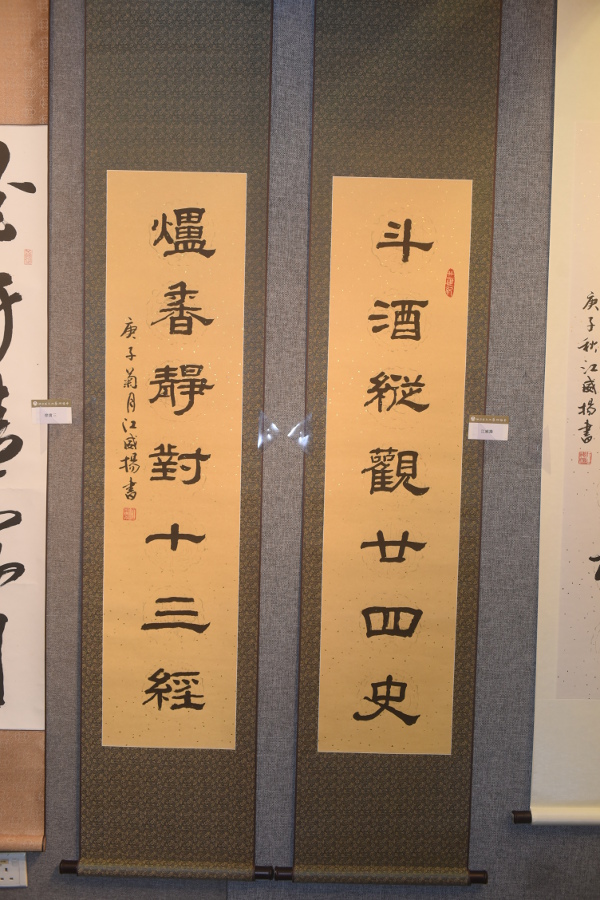 斗酒縱觀廿四史
爐香靜對十三經
庚子菊月江威揚書
庚子秋江威揚書